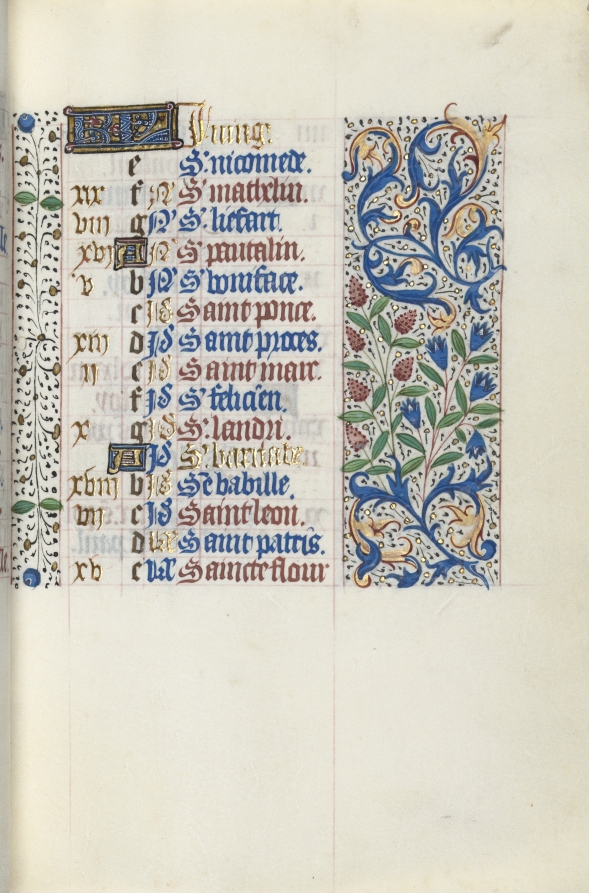 KL Iuing.
e S. nicomede.
xix f N S. mathelin.
viii g N S. liefart.
xvi A N S. pantalin.
v b N S. boniface.
c id Saint ponce.
xiii d id Saint proces.
ii e id Saint marc.
f id S. felicien.
x g id S. landri.
A id S. barnabe
xviii b id Se babille.
vii c id Saint leon.
d kl Saint patris.
xv e kl Saincte flour